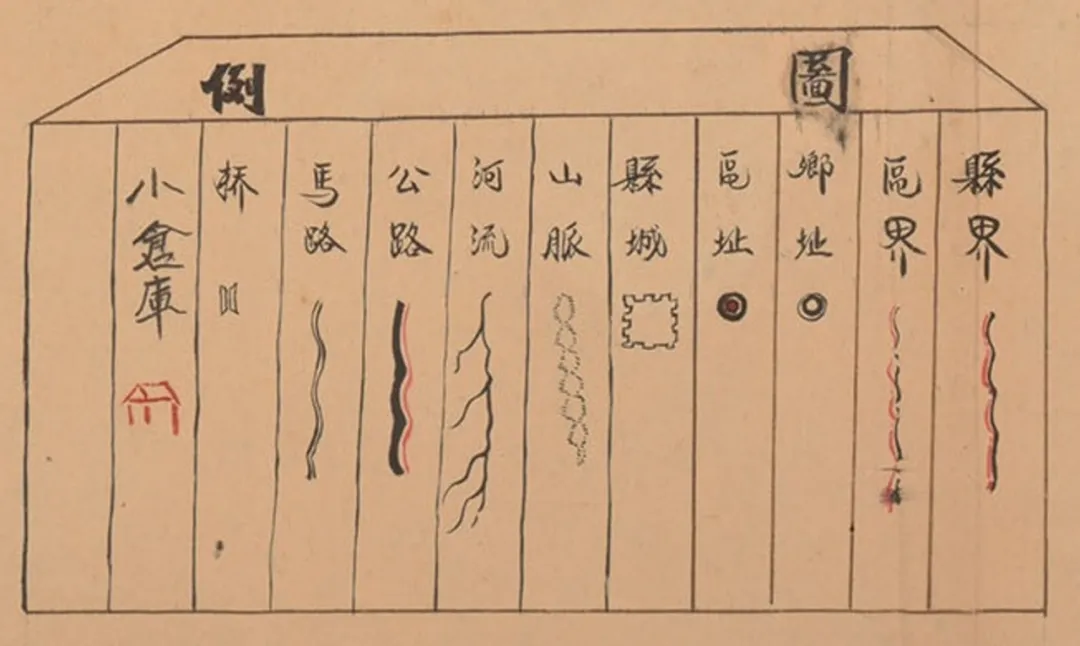 圖例
縣界
區界
鄉址
區址
縣城
山脈
河流
公路
馬路
桥
小倉庫